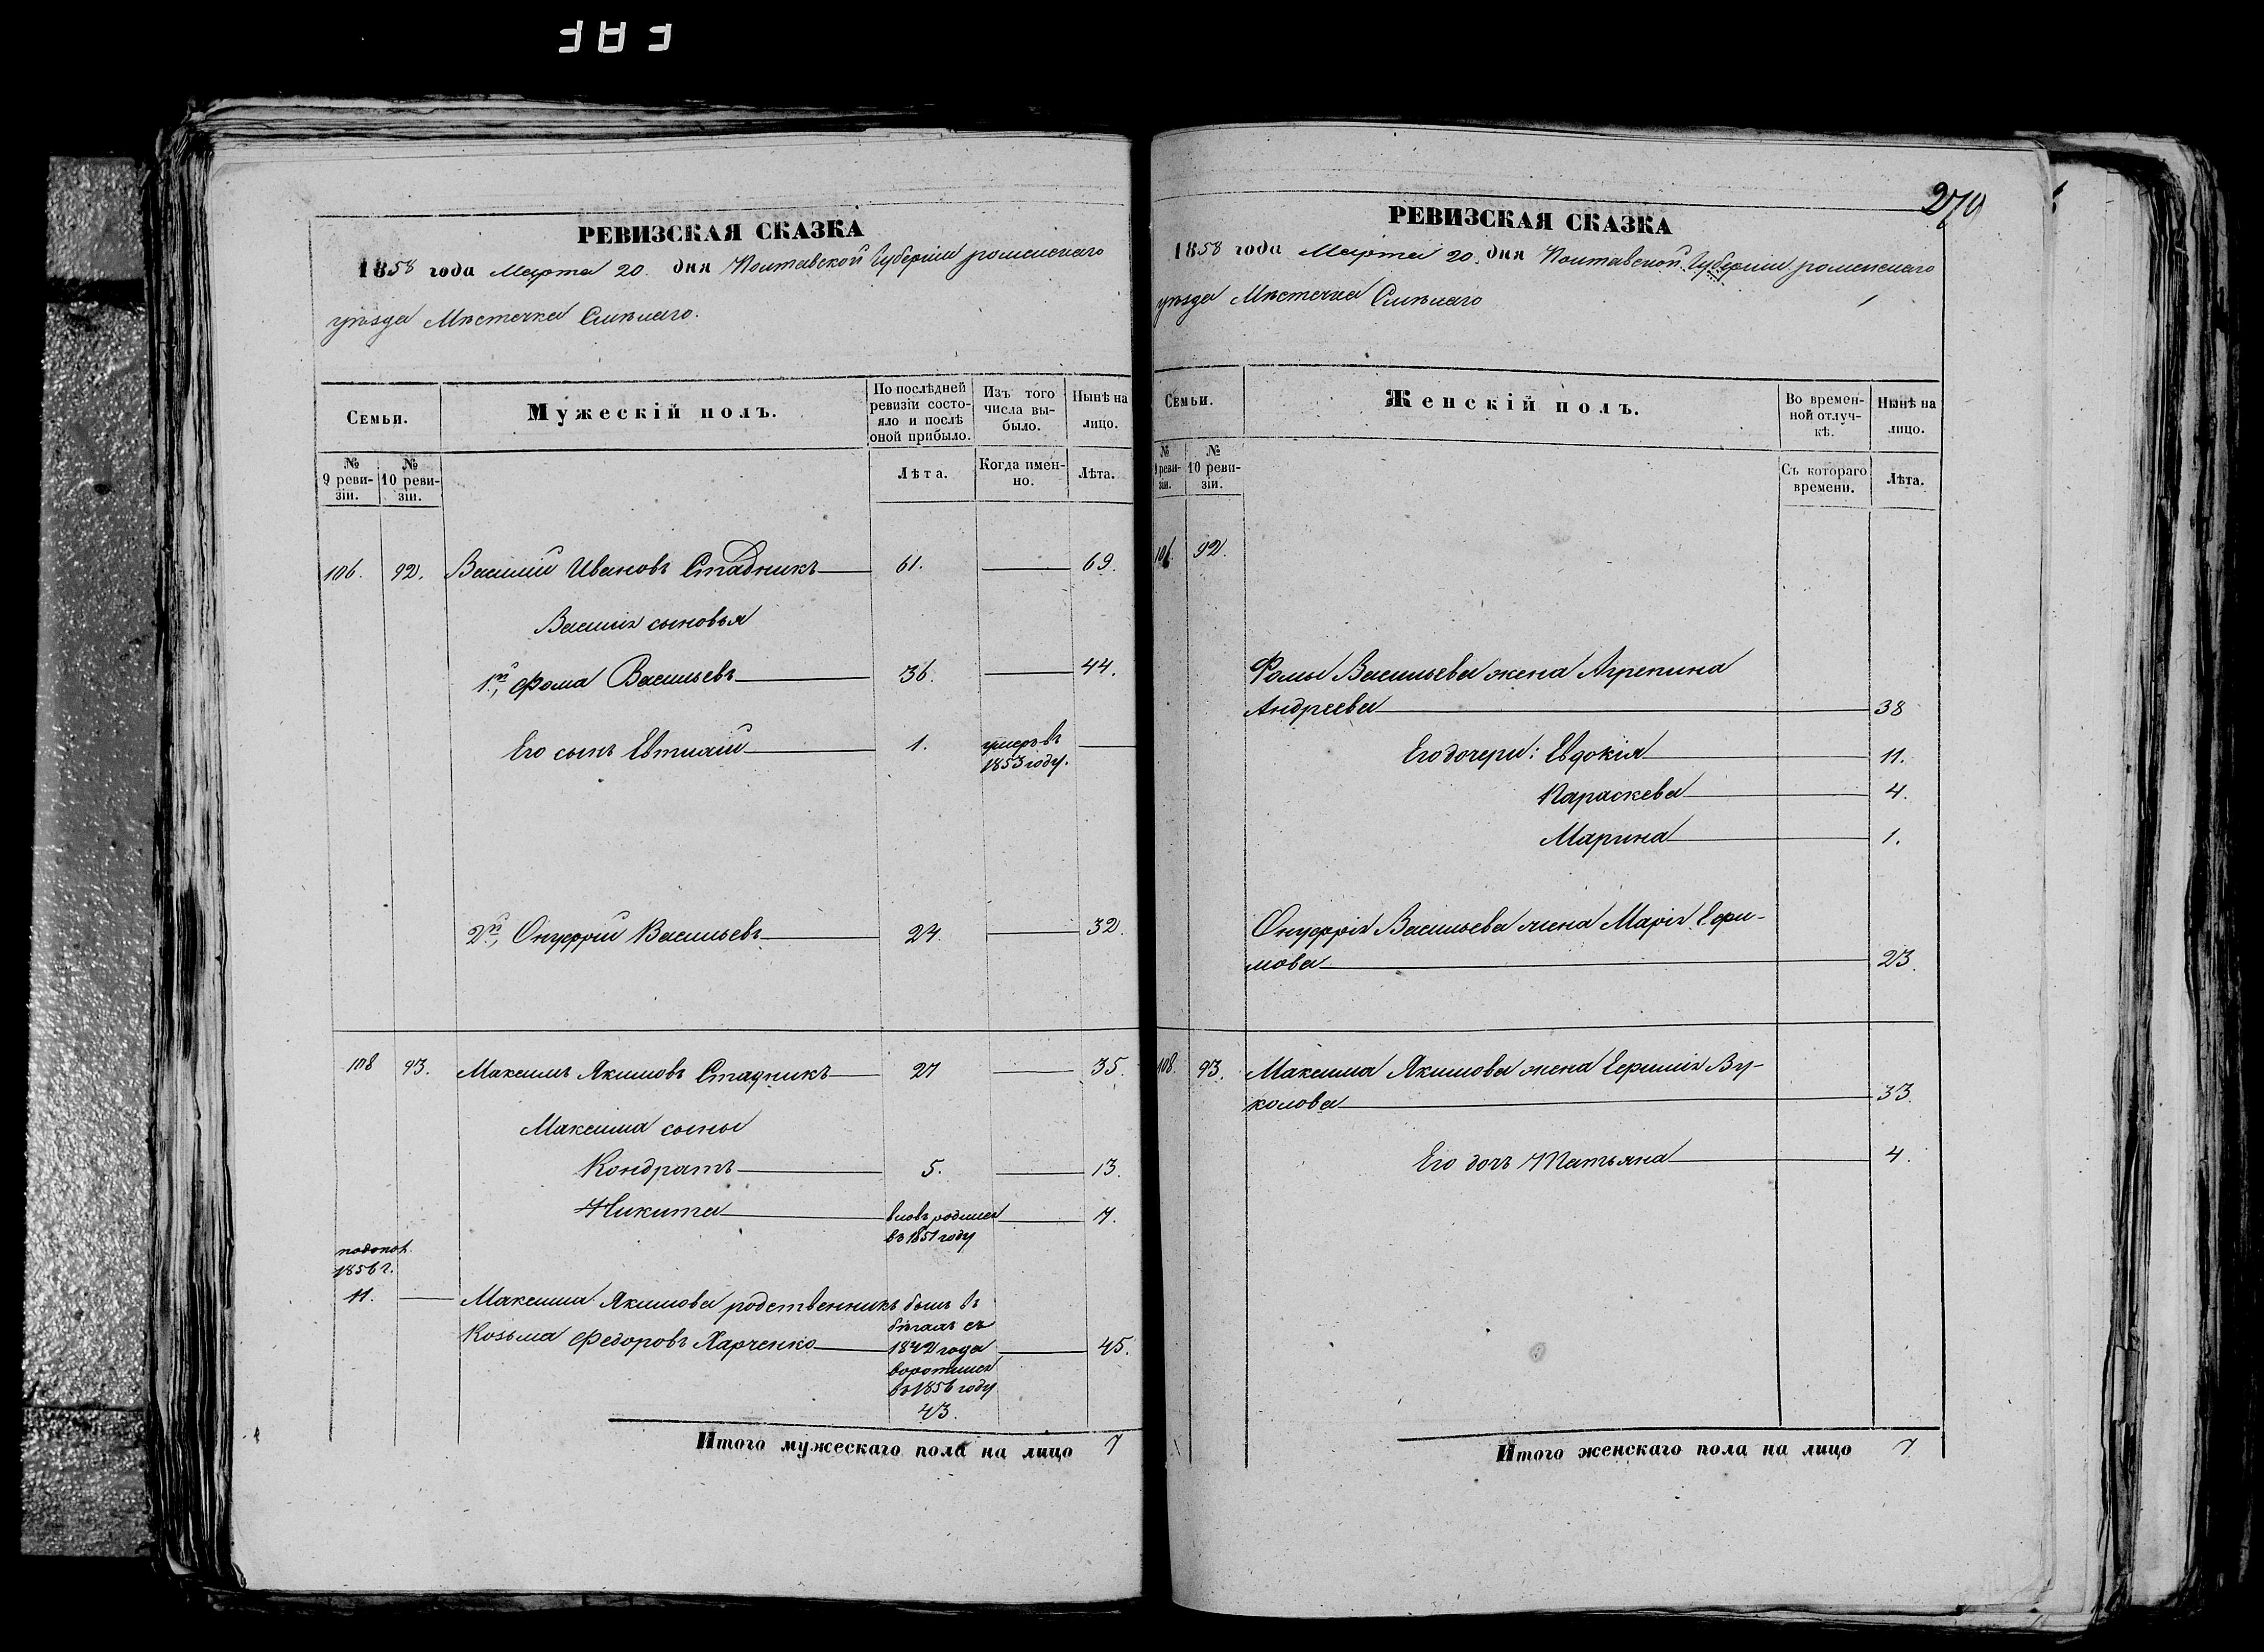 270
РЕВИЗСКАЯ СКАЗКА
1858 года Марта 20. дня Полтавской Губерніи роменскаго
уѣзда Мѣстечка Смѣлаго.
Семьи.
Мужескій полъ.
По послѣдней
ревизіи состо-
яло и послѣ
оной прибыло.
Изъ того
числа вы-
было.
Нынѣ на
лицо.
№
9 реви-
зіи.
№
10 реви-
зіи.
Лѣта.
Когда имен-
но.
Лѣта.
106. 92. Василій Ивановъ Стадникъ 61. 69.
Василія сыновья
1й, Фома Васильевъ 36. 44.
Его сынъ Евтихій 1. умеръ въ
1853 году.
2й, Онуфрій Васильевъ 24. 32.
108 93. Максимъ Якимовъ Стадникъ 27 35.
Максима сыны
Кондратъ 5. 13.
Никита вновь родился 7.
въ 1851 году
1856 г.
11. Максима Якимова родственникъ былъ въ
бѣгахъ съ
Козьма Федоровъ Харченко 1842 года 45.
воротился
въ 1856 году
43.
Итого мужескаго пола на лицо 7
РЕВИЗСКАЯ СКАЗКА
1858 года Марта 20. дня Полтавской Губерніи роменскаго
уѣзда Мѣстечка Смѣлаго
Семьи.
Женскій полъ.
Во времен-
ной отлуч-
кѣ.
Нынѣ на
лицо.
№
9 реви-
зіи.
№
10 реви-
зіи.
Съ котораго
времени.
Лѣта.
106. 92.
Фомы Васильева жена Агрепина
Андреева 38
Его дочери: Евдокія 11.
Параскева 4.
Марина 1.
Онуфрія Васильева жена Марія Ефи-
мова 23.
108. 93. Максима Якимова жена Ефимія Ву-
колова 33.
Его дочь Татьяна 4.
Итого женскаго пола на лицо 7